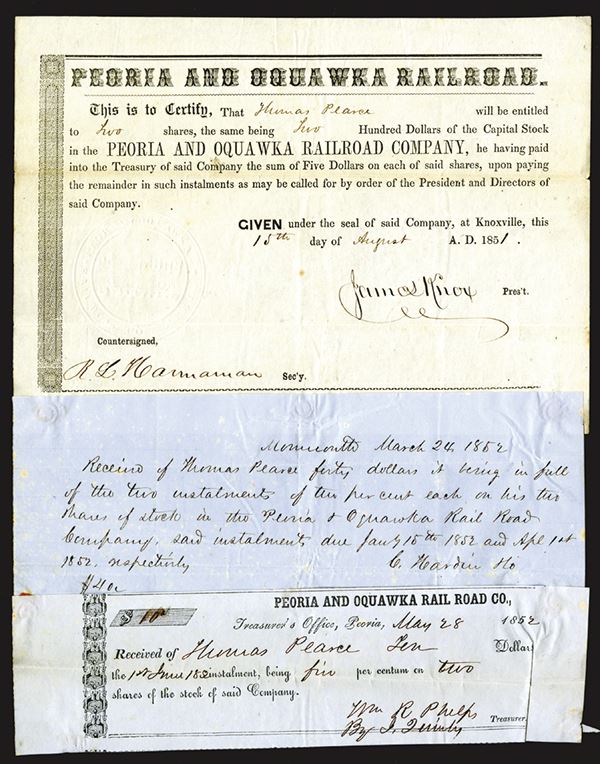 PEORIA AND OQUAWKA RAILROAD.
This is to Certify, That Thomas Pearce will be entitled
to Two shares, the same being Two Hundred Dollars of the Capital Stock
in the PEORIA AND OQUAWKA RAILROAD COMPANY, he having paid
into the Treasury of said Company the sum of Five Dollars on each of said shares, upon paying
the remainder in such instalments as may be called for by order of the President and Directors of
said Company.
GIVEN under the seal of said Company, at Knoxville, this
15th day of August A. D. 1851.
James Knox Pres't.
Countersigned,
R. L. Hannaman Sec'y.
Monmouth March 24, 1852
Receivd of Thomas Pearce forty dollars it being in full
of the two instalments of ten per cent each on his two
shares of stock in the Peoria & Oquawka Rail Road
Company, said instalments due Jany 15th 1852 and Apl 1st
1852, respectively
C. Hardin
$40
PEORIA AND OQUAWKA RAIL ROAD CO.,
$10 Treasurer's Office, Peoria, May 28 1852
Received of Thomas Pearce Ten Dollars
the 1st June 1852 instalment, being five per centum on two
shares of the stock of said Company.
Wm R Phelps Treasurer
By J.